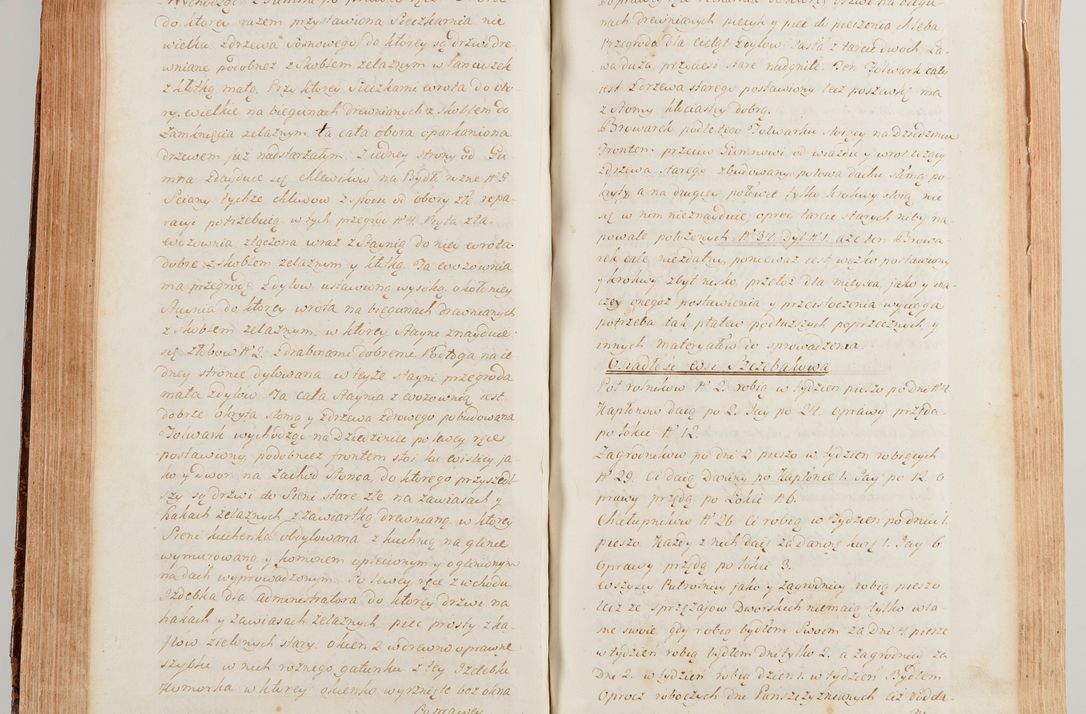 do ktorey razem przystawiona Sieczkarnia nie
wielka zdrzewa Sosnowego, do ktorey są drzwi dre-
wniane podobnez z skoblem zelaznym w łancuszek
z klotką małą. Przy ktorey Sieczkarni wrota do obo-
ry, wielkie na biegunach drewnianych z skoblem do
Zamknięcia zelaznym ta cała obora oparkaniona
drzewem juz nadstarzałym. Ziedney strony od Gu-
mna znayduie się chlewikow na Bydło rozne Nº 5
Sciany tychze chlewow z spodu od obory złe repa-
racyi potrzebuią, w tych przegrod Nº 4. Kryta zła.
Wozownia złączona wraz z Staynią do niey wrota
dobre z skoblem zelaznym y klotką. Ta wozownia
ma przegrodę z dylow ustawioną wysoką, około niey
Staynia do ktorey wrota na biegunach drewnianych
z skoblem zelaznym w ktorey Stayni znayduie
się złobow Nº 2. z drabinami dobremi Podłoga na ie-
dney stronie dylowana w teyze stayni przegroda
mała z dylow. Ta cała Staynia z wozownią iest
dobrze okryta słomą y zdrzewa zdrowego pobudowana
Folwark wychodząc na Dziedziniec po lewey ręce
postawiony, podobniez frontem stoi ku wiosczy ja-
ko y dwor na Zachod Słonca, do ktorego przyszedł-
szy są drzwi do Sieni stare złe na zawiasach y
hakach zelaznych z zawiartką drewnianą, w ktorey
Sieni kuchenka obdylowana z kuchnią na glinie
wymurowaną y kominem oplecionym y oglinionym
na dach wyprowadzonym. Po lewey ręce z wchodu
Izdebka dla Administratora do ktorey drzwi na
hakach y zawiasach zelaznych piec prosty z ka-
flow zielonych stary. okien 2 w drewno oprawne
szybki w nich roznego gatunku z tey Izdebki
Komorka w ktorey okienko wyrznięte bez okna
Po prawey
nach drewnianych piecyk y piec do pieczenia chleba
Przegroda dla Cieląt z dylow 
wa duza, przyciesi stare nadgniłe. Ten Folwark cały
iest z drzewa starego postawiony lecz poszewkę ma
z słomy kłuciastey dobrą.
Browarek podle tego Folwarku stoiący na Dziedzincu
Frontem przeciw Gumnowi od wiazdu y wrot lezący
z drzewa starego zbudowany połowa dachu słomą po-
kryty a na drugiey połowie tylko krokwy stoią nic
się w nim nieznayduie oprocz tarcic starych niby na
powale połozonych Nº 34. dyl Nº 1. aze ten Browa-
rek cale niezdatny, poniewaz iest wązko postawiony
y krokwy zbyt nisko, przetoz dla mieysca jako y ina-
czey onegoz postawienia y przeistoczenia wyciąga
potrzeba tak płatew podłuzszych poprzecznych, y
innych materyałow do sprowadzenia
Osiadłość wsi Szczebałowa
Poł rolnikow Nº 2. robią w tydzien pieszo po dni Nº 4.
Kapłonow daią po 2. Jay po 24. oprawy przędą
po łokci Nº 12.
Zagrodnikow po dni 2 pieszo w tydzien robiących
Nº 29. Ci daią Daniny po Kapłonie 1. Jay po 12. o
prawy przędą po łokci Nº 6.
Chałupnikow Nº 26 Ci robią w tydzien po dniu 1.
pieszo Kazdy z nich daią za daninę kurę 1. Jay 6.
Oprawy przędą po łokci 3.
Wszyscy Pułrolnicy jako y zagrodnicy robią pieszo
lecz ze sprzęzajow Dworskich niemaią tylko wła-
sne swoie, gdy robią bydłem swoim za dni 4 piesze
w tydzien robią bydłem dni tylko 2. a zagrodnicy za
Dni 2. w tydzien robią dzien 1. w tydzien Bydłem
Oprocz roboczych dni Panszczyznianych ciz Podda-